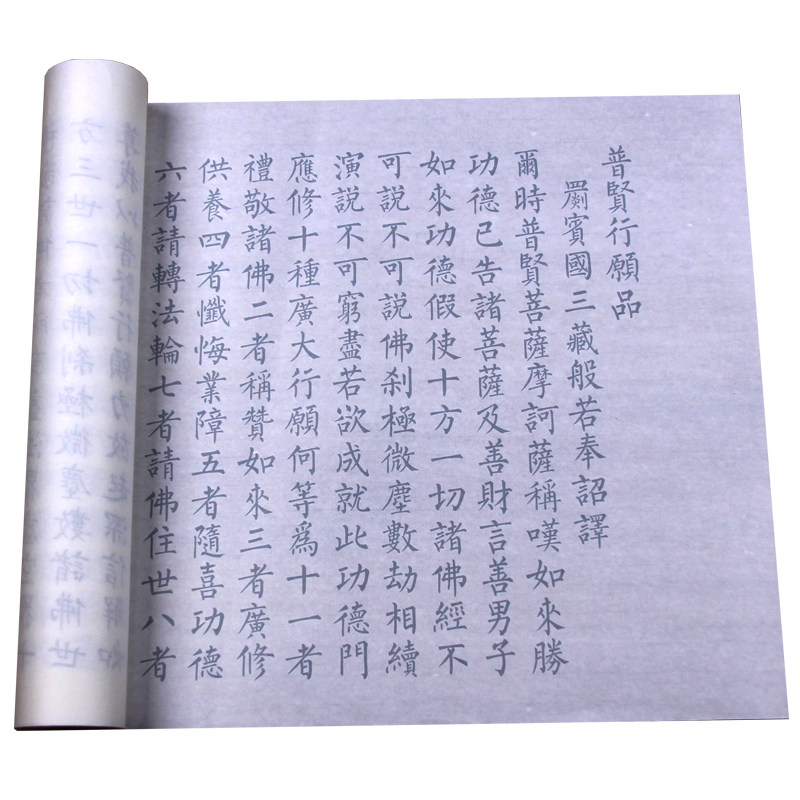 普賢行願品
罽賓國三藏般若奉詔譯
爾時普賢菩薩摩訶薩稱嘆如來勝
功德已告諸菩薩及善財言善男子
如來功德假使十方一切諸佛經不
可說不可說佛剎極微塵數劫相續
演說不可窮盡若欲成就此功德門
應修十種廣大行願何等爲十一者
禮敬諸佛二者稱贊如來三者廣修
供養四者懺悔業障五者隨喜功德
六者請轉法輪七者請佛住世八者
方三世一切佛剎極微塵數諸佛世
尊我以普賢行願力故起深信解如